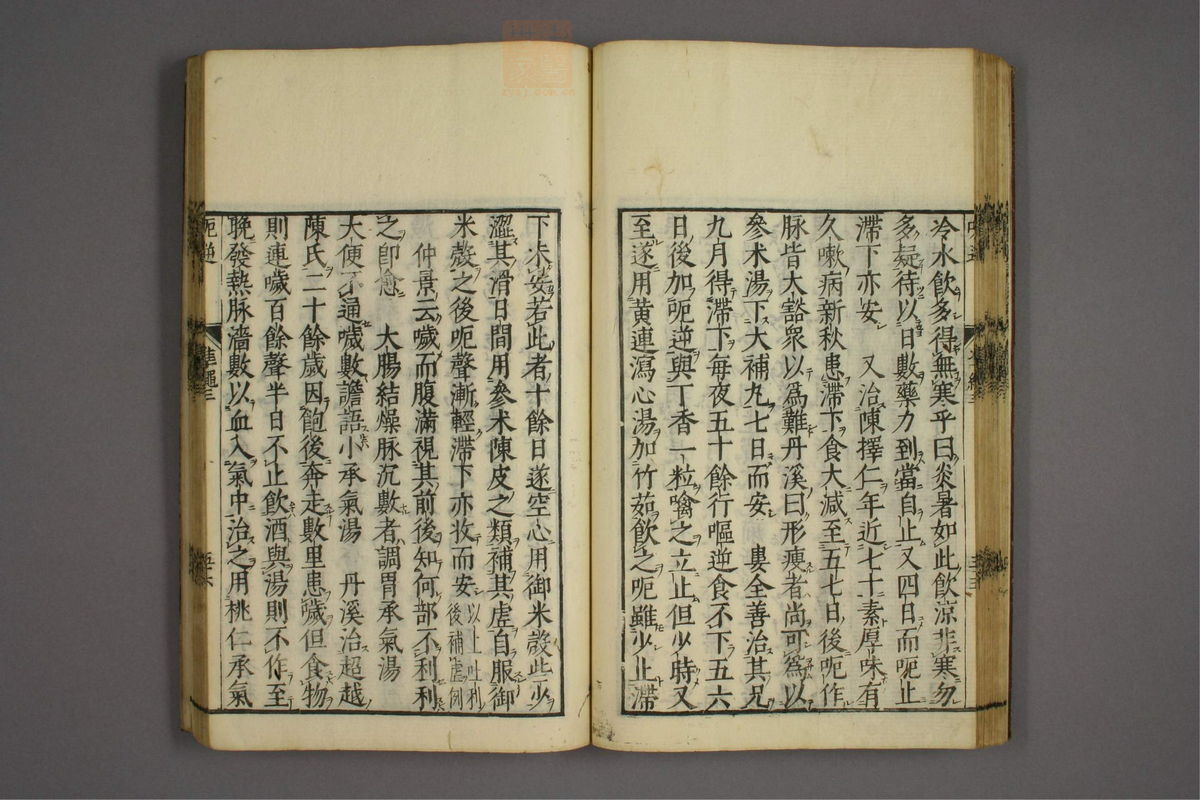 冷水飲多得無寒乎曰炎暑如此飲涼非寒勿
多疑待以日數藥力到當自止又四日而呃止
滯下亦安　又治陳擇仁年近七十素厚味有
久嗽病新秋患滯下食大減至五七日後呃作
脉皆大豁衆以爲難丹溪曰形瘦者尚可爲以
參朮湯下大補丸七日而安　婁全善治其兄
九月得滯下每夜五十餘行嘔逆食不下五六
日後加呃逆與丁香一粒噙之立止但少時又
至遂用黄連瀉心湯加竹茹飲之呃雖少止滯
下未安若此者十餘日遂空心用御米殼些少
澀其滑日間用參朮陳皮之類補其虛自服御
米殼之後呃聲漸輕滯下亦收而安以上吐利後補虛例
仲景云噦而腹滿視其前後知何部不利利
之即愈　大腸結燥脉沉數者調胃承氣湯
大便不通噦數譫語小承氣湯　丹溪治超越
陳氏二十餘歲因飽後奔走數里患噦但食物
則連噦百餘聲半日不止飲酒與湯則不作至
晚發熱脉濇數以血入氣中治之用桃仁承氣
呃逆
準繩三